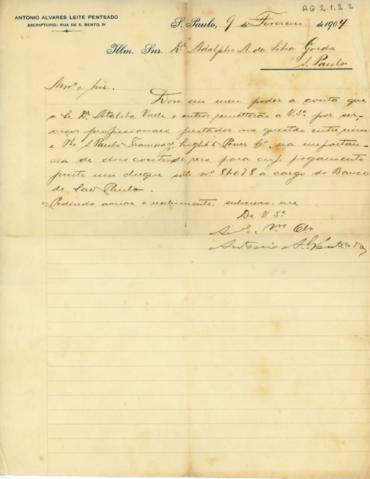 AG 2.1.2.2
ANTONIO ALVARES LEITE PENTEADO
ESCRIPTORIO: RUA DE S. BENTO,
S. Paulo, 9 de Fevereiro de 1904
Illm. Snr. Dr. Adolpho A. da Silva Gordo
S. Paulo
Amo. e Snr.
Dou em meu poder a conta que
o Sr. Dr. Ataliba Valle e outros remetteram a V. Sa. por ser-
viços profissionaes prestados na questão entre mim
e The S. Paulo Tramway, Light & Power Co. na importan-
cia de dois contos de reis, para cujo pagamento
junto um cheque sob no. 86078 a cargo do Banco
de Sao Paulo.
Pedindo accusar o recebimento, subscrevo-me
De V. Sa.
Antonio A. Penteado